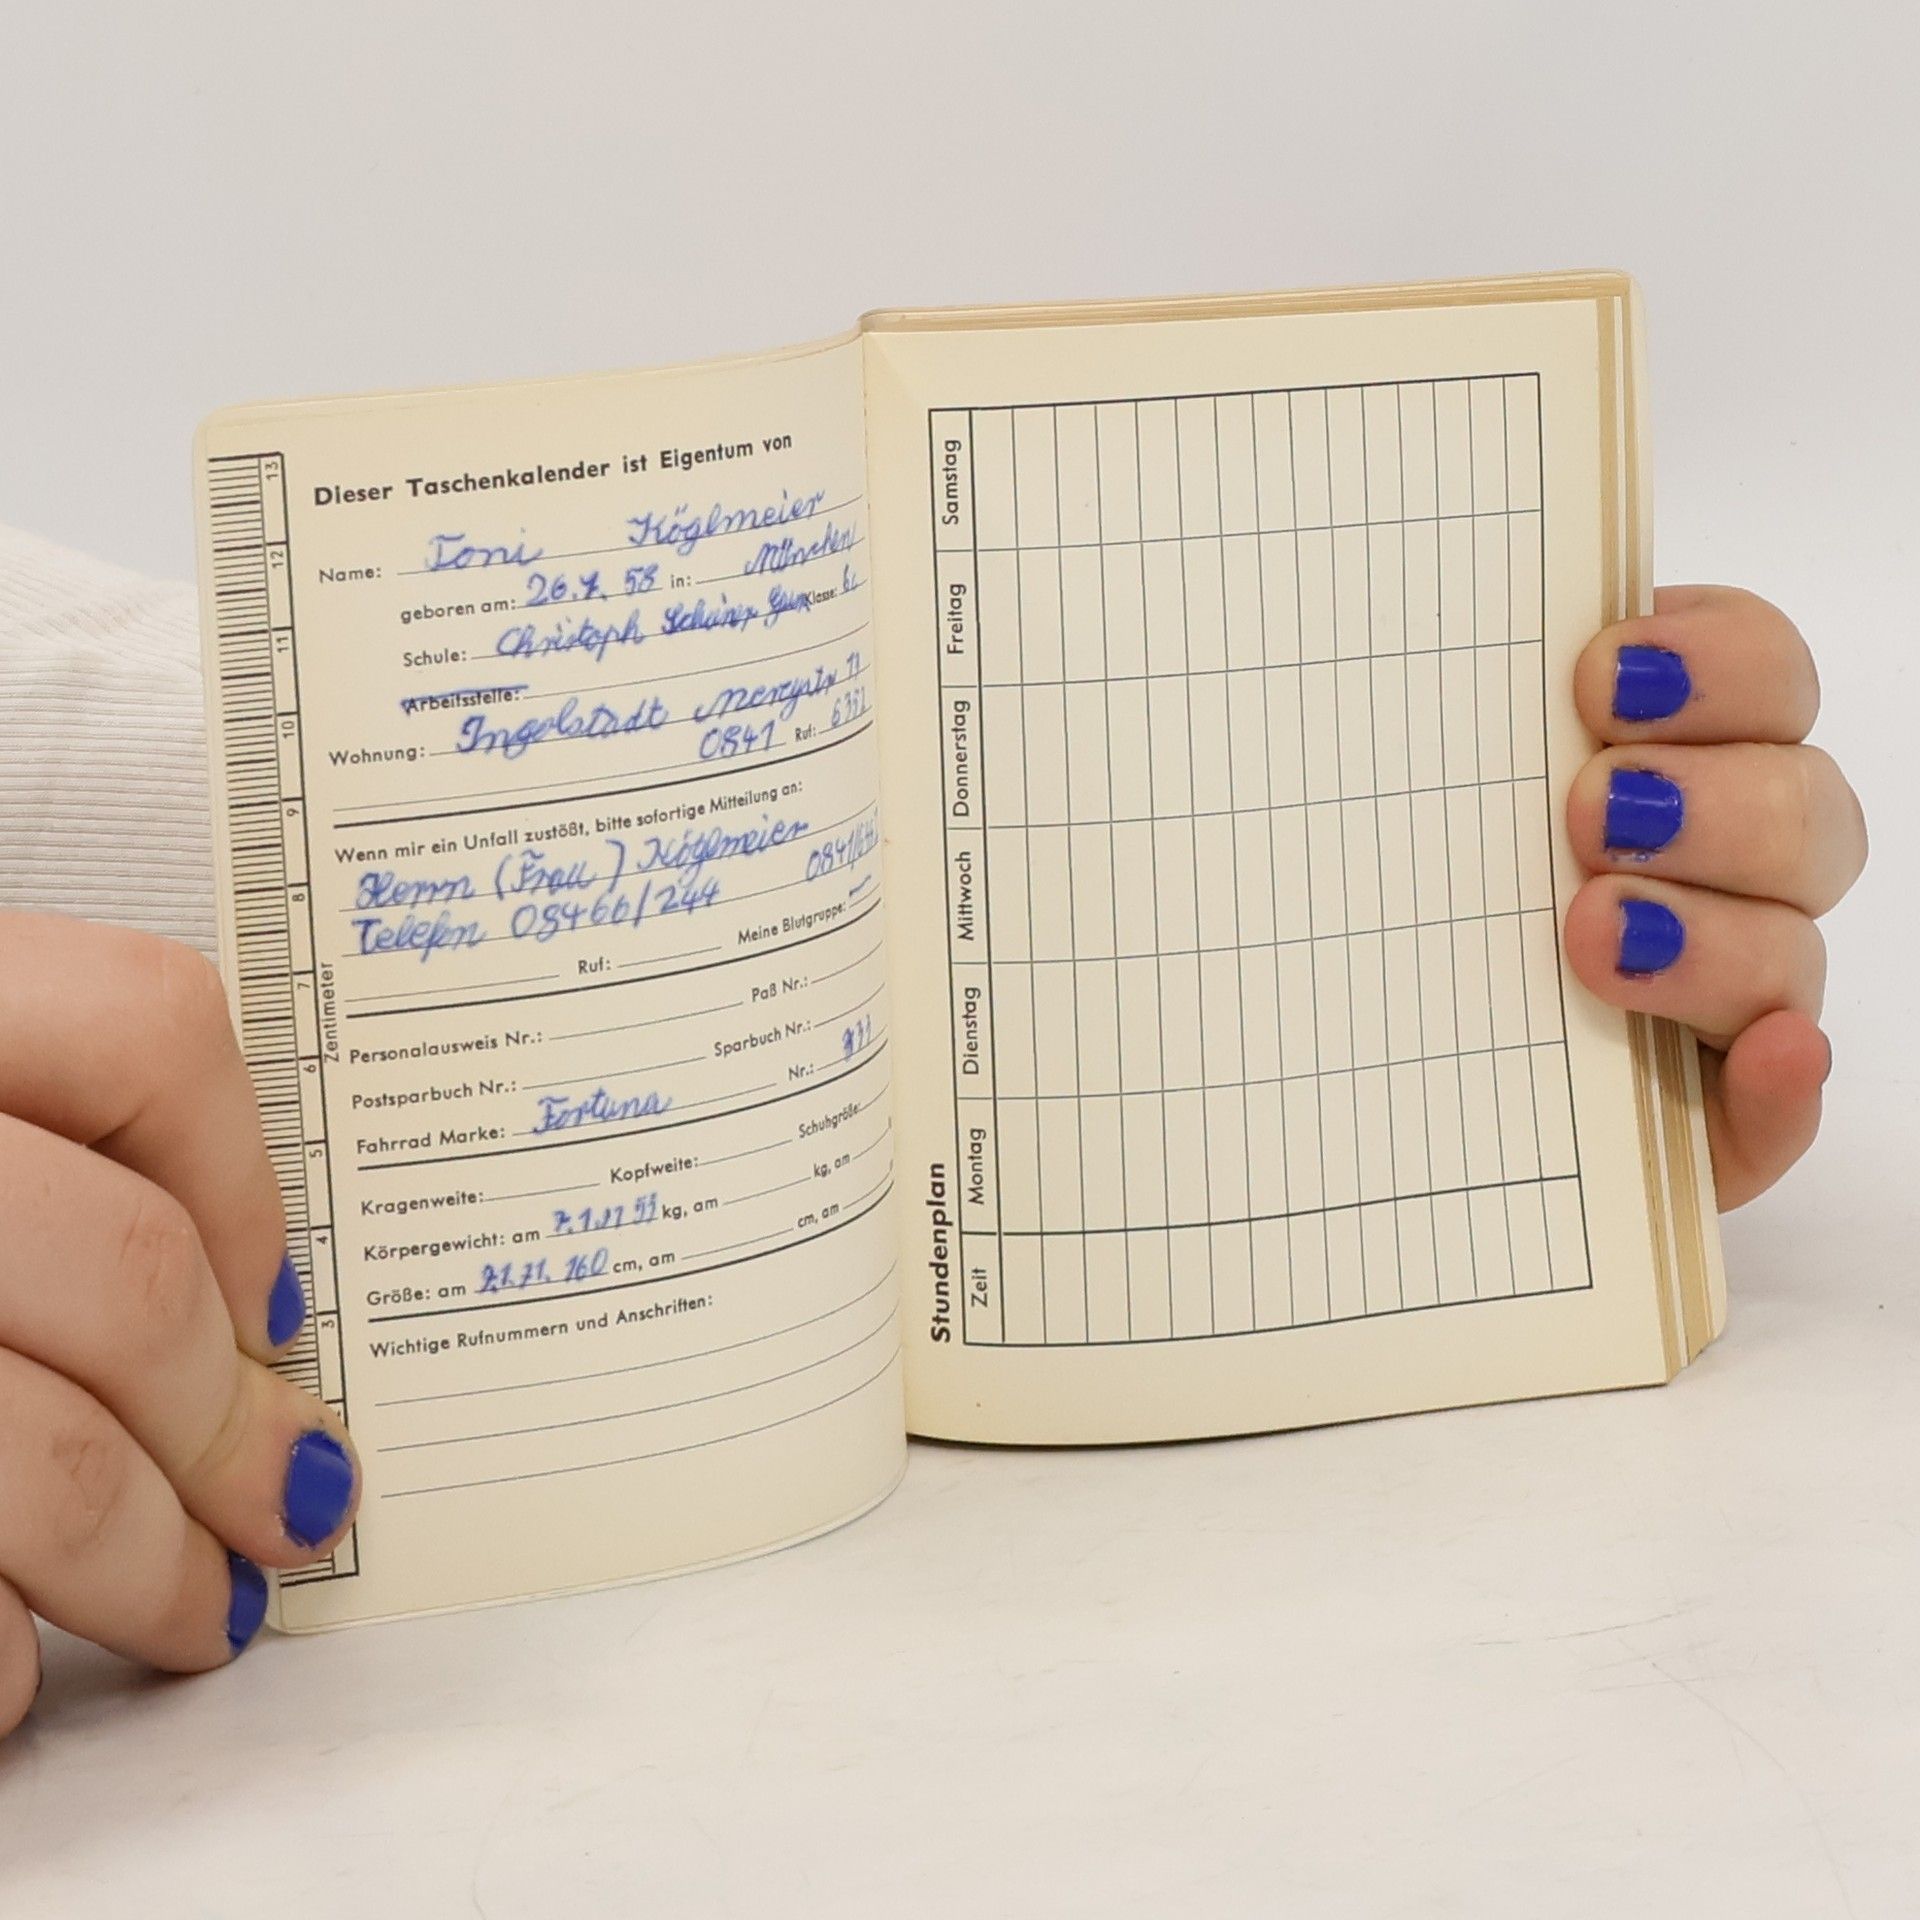 Dieser Taschenkalender ist Eigentum von
Name: Toni Köglmeier
geboren am: 26.7.58 in: München
Schule: Christoph Scheiner Gym Klasse: 6c
Arbeitsstelle:
Wohnung: Ingolstadt 11
0841 Ruf: 6352
Wenn mir ein Unfall zustößt, bitte sofortige Mitteilung an:
Herrn (Frau) Köglmeier
Telefon 08466/244 0841/
Ruf: Meine Blutgruppe: —
Personalausweis Nr.: Paß Nr.:
Postsparbuch Nr.: Sparbuch Nr.:
Fahrrad Marke: Fortuna Nr.:
Kragenweite: Kopfweite: Schuhgröße:
Körpergewicht: am kg, am kg, am
Größe: am 7.1.71. 160 cm, am cm, am
Wichtige Rufnummern und Anschriften:
Zentimeter
3
4
5
6
7
8
9
10
11
12
13
Stundenplan
Zeit Montag Dienstag Mittwoch Donnerstag Freitag Samstag